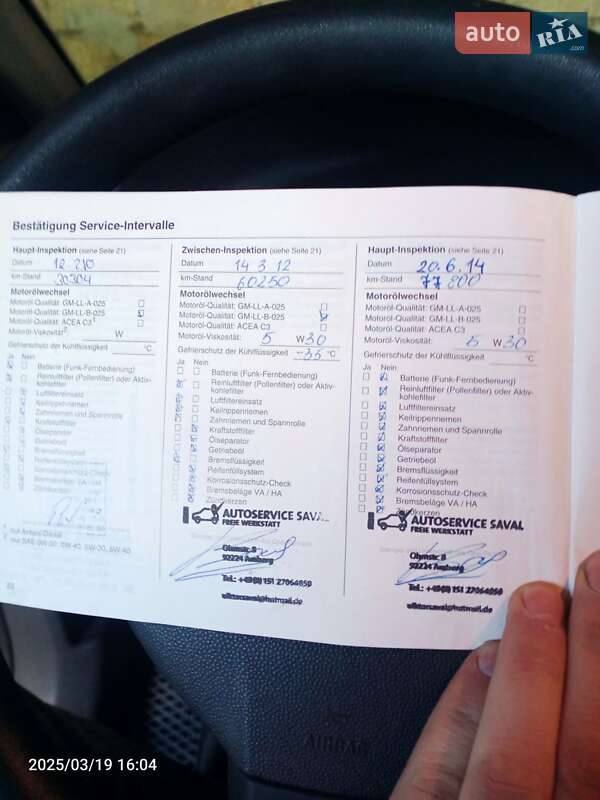 auto RIA .com
Bestätigung Service-Intervalle
Haupt-Inspektion (siehe Seite 21)
Datum
km-Stand 30304
Motorölwechsel
Motoröl-Qualität: GM-LL-A-025
Motoröl-Qualität: GM-LL-B-025
Motoröl-Qualität: ACEA C3
Motoröl-Viskosität: W
Gefrierschutz der Kühlflüssigkeit °C
Ja Nein
Batterie (Funk-Fernbedienung)
Reinluftfilter (Pollenfilter) oder Aktiv-
kohlefilter
Luftfiltereinsatz
Keilrippenriemen
Zahnriemen und Spannrolle
Kraftstofffilter
Ölseparator
Getriebeöl
Bremsflüssigkeit
Reifenfüllsystem
Korrosionsschutz-Check
Bremsbeläge VA / HA
Zwischen-Inspektion (siehe Seite 21)
Datum 14 3 12
km-Stand 60250
Motorölwechsel
Motoröl-Qualität: GM-LL-A-025
Motoröl-Qualität: GM-LL-B-025
Motoröl-Qualität: ACEA C3
Motoröl-Viskosität: 5 W 30
Gefrierschutz der Kühlflüssigkeit -35 °C
Ja Nein
Batterie (Funk-Fernbedienung)
Reinluftfilter (Pollenfilter) oder Aktiv-
kohlefilter
Luftfiltereinsatz
Keilrippenriemen
Zahnriemen und Spannrolle
Kraftstofffilter
Ölseparator
Getriebeöl
Bremsflüssigkeit
Reifenfüllsystem
Korrosionsschutz-Check
Bremsbeläge VA / HA
Zündkerzen
AUTOSERVICE SAVAL
FREIE WERKSTATT
92224 Amberg
Tel.: +49(0) 151 27064850
viktorsaval@hotmail.de
Haupt-Inspektion (siehe Seite 21)
Datum 20.6.14
km-Stand 77 800
Motorölwechsel
Motoröl-Qualität: GM-LL-A-025
Motoröl-Qualität: GM-LL-B-025
Motoröl-Qualität: ACEA C3
Motoröl-Viskosität: 5 W 30
Gefrierschutz der Kühlflüssigkeit °C
Ja Nein
Batterie (Funk-Fernbedienung)
Reinluftfilter (Pollenfilter) oder Aktiv-
kohlefilter
Luftfiltereinsatz
Keilrippenriemen
Zahnriemen und Spannrolle
Kraftstofffilter
Ölseparator
Getriebeöl
Bremsflüssigkeit
Reifenfüllsystem
Korrosionsschutz-Check
Bremsbeläge VA / HA
Zündkerzen
AUTOSERVICE SAVAL
FREIE WERKSTATT
92224 Amberg
Tel.: +49(0) 151 27064850
viktorsaval@hotmail.de
AIRBAG
2025/03/19 16:04